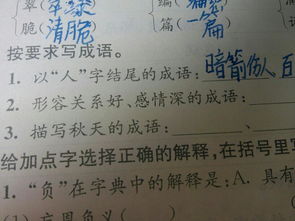 翠( 翠绿 编( 编
脆(清脆 篇(一篇
按要求写成语。
1. 以“人”字结尾的成语:暗箭伤人 百
2. 形容关系好、感情深的成语:
3. 描写秋天的成语:
给加点字选择正确的解释,在括号里写
1. “负”在字典中的解释是:A. 具有
(1) 忘恩负义( )